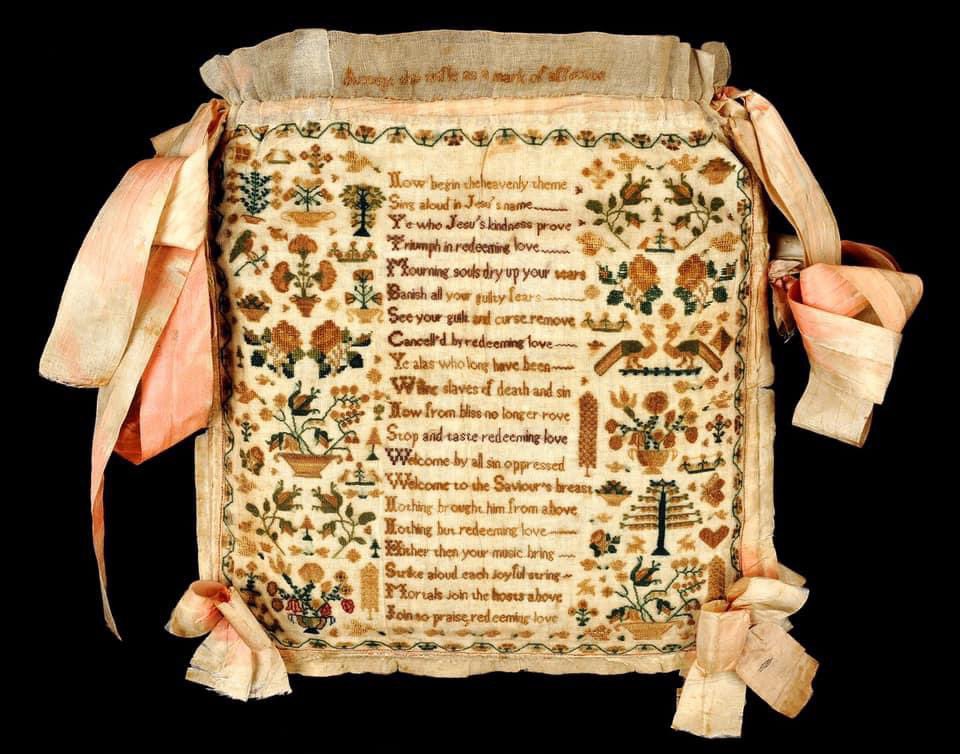 Accept this trifle as a mark of affection
Now begin the heavenly theme
Sing aloud in Jesu's name
Ye who Jesu's kindness prove
Triumph in redeeming love
Mourning souls dry up your tears
Banish all your guilty fears
See your guilt and curse remove
Cancell'd by redeeming love
Ye alas who long have been
Willing slaves of death and sin
Now from bliss no longer rove
Stop and taste redeeming love
Welcome by all sin oppressed
Welcome to the Saviour's breast
Nothing brought him from above
Nothing but redeeming love
Hither then your music bring
Strike aloud each joyful string
Mortals join the hosts above
Join to praise redeeming love